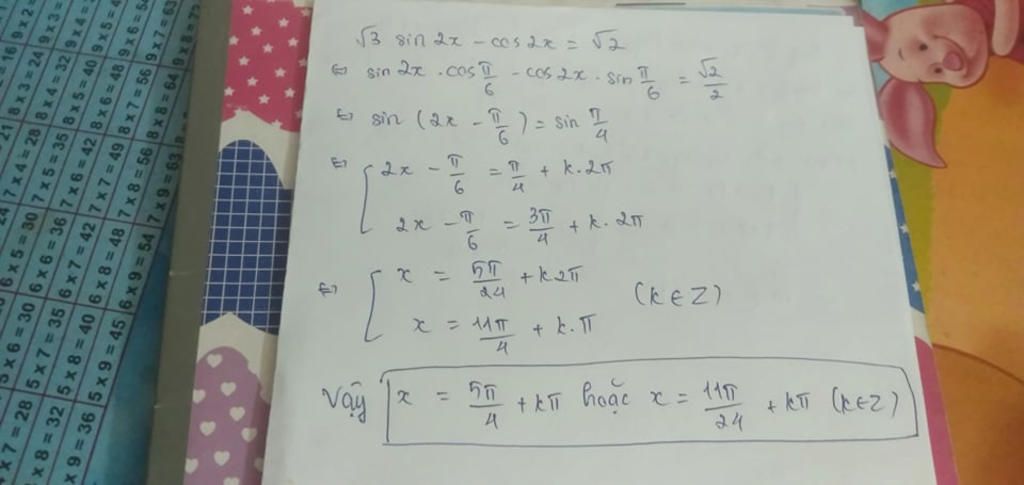 √3 sin 2x - cos 2x = √2
⇔ sin 2x . cos π/6 - cos 2x . sin π/6 = √2/2
⇔ sin (2x - π/6) = sin π/4
⇔ [ 2x - π/6 = π/4 + k.2π
2x - π/6 = 3π/4 + k.2π
⇔ [ x = 5π/24 + k2π
x = 11π/4 + k.π (k ∈ Z)
Vậy x = 5π/4 + kπ hoặc x = 11π/24 + kπ (k ∈ Z)
8 x 3 = 24
8 x 4 = 32
8 x 5 = 40
8 x 6 = 48
8 x 7 = 56
8 x 8 = 64
7 x 4 = 28
7 x 5 = 35
7 x 6 = 42
7 x 7 = 49
7 x 8 = 56
7 x 9 = 63
6 x 5 = 30
6 x 6 = 36
6 x 7 = 42
6 x 8 = 48
6 x 9 = 54
5 x 6 = 30
5 x 7 = 35
5 x 8 = 40
5 x 9 = 45
x 7 = 28
x 8 = 32
x 9 = 36